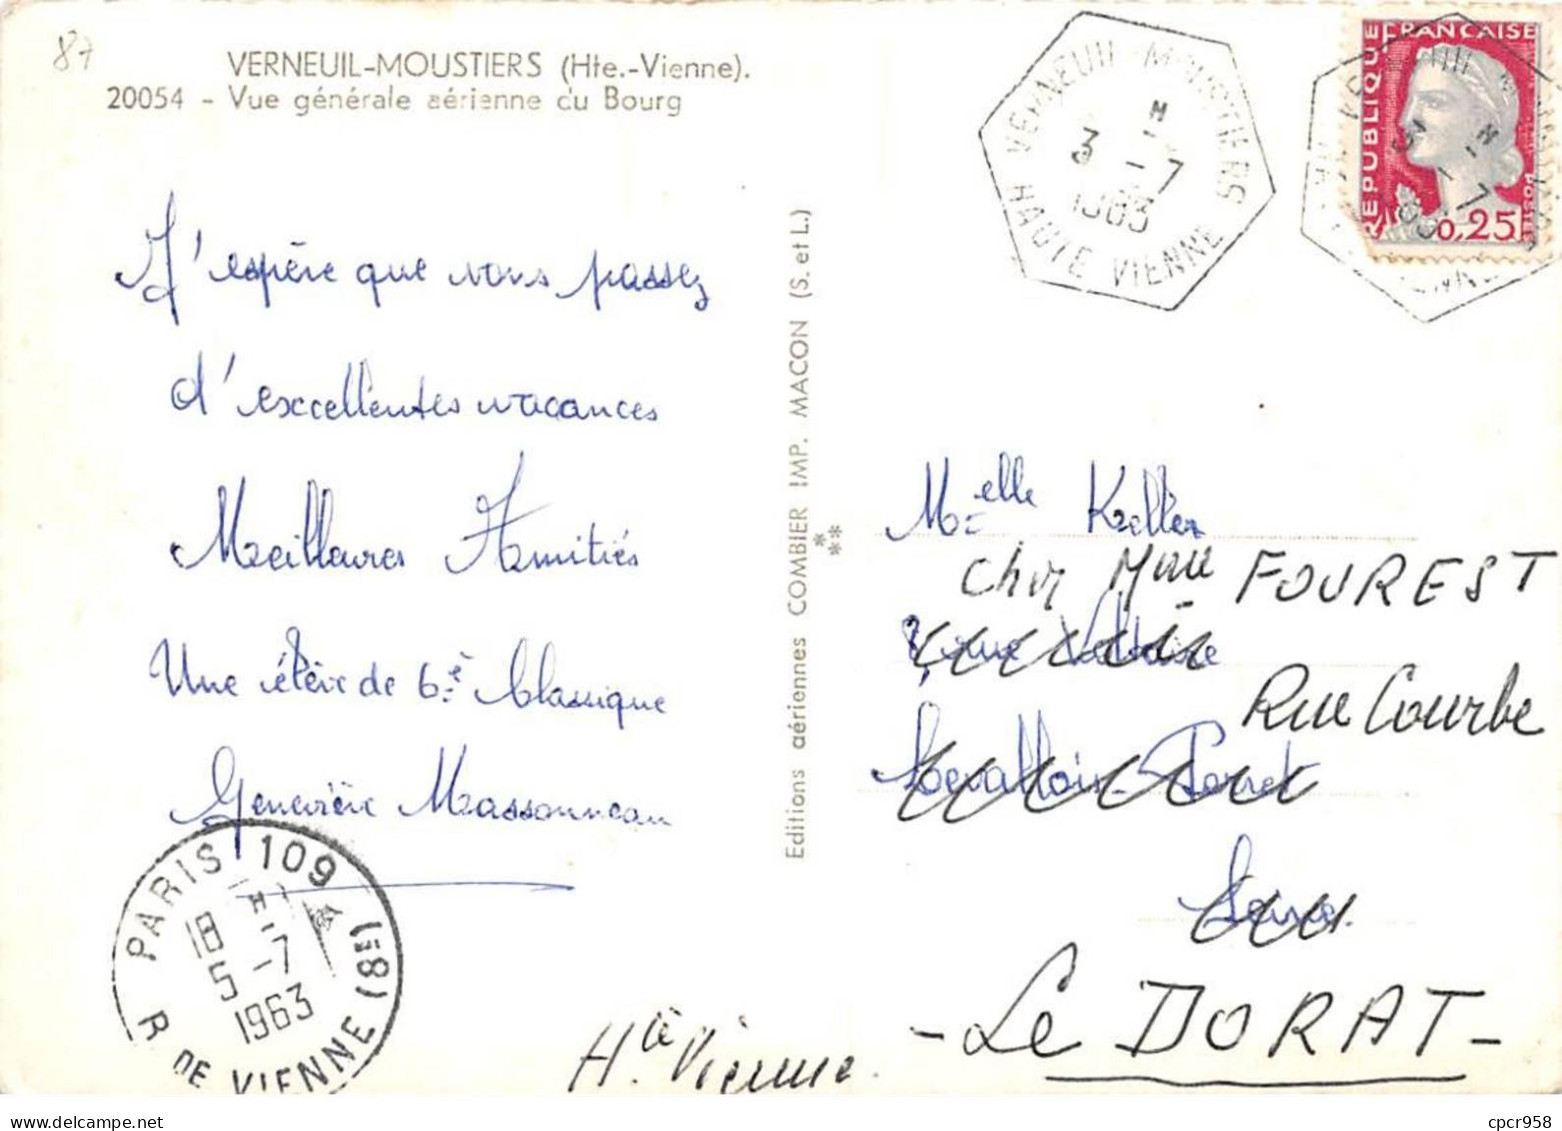 87
VERNEUIL-MOUSTIERS (Hte.-Vienne).
20054 - Vue générale aérienne du Bourg
J'espère que vous passez
d'excellentes vacances
Meilleures Amitiés
Une élève de 6è Classique
Geneviève Massonneau
PARIS 109
18 H
5 -7
1963
R DE VIENNE (8E)
Hte Vienne.
Editions aériennes COMBIER IMP. MACON (S. et L.)
VERNEUIL-MOUSTIERS
H
3 -7
1963
HAUTE VIENNE
REPUBLIQUE FRANÇAISE
0,25
Melle Keller
Chez Mme FOUREST
rue Voltaire
Rue Courbe
Levallois-Perret
Seine
- Le DORAT -
cpcr958